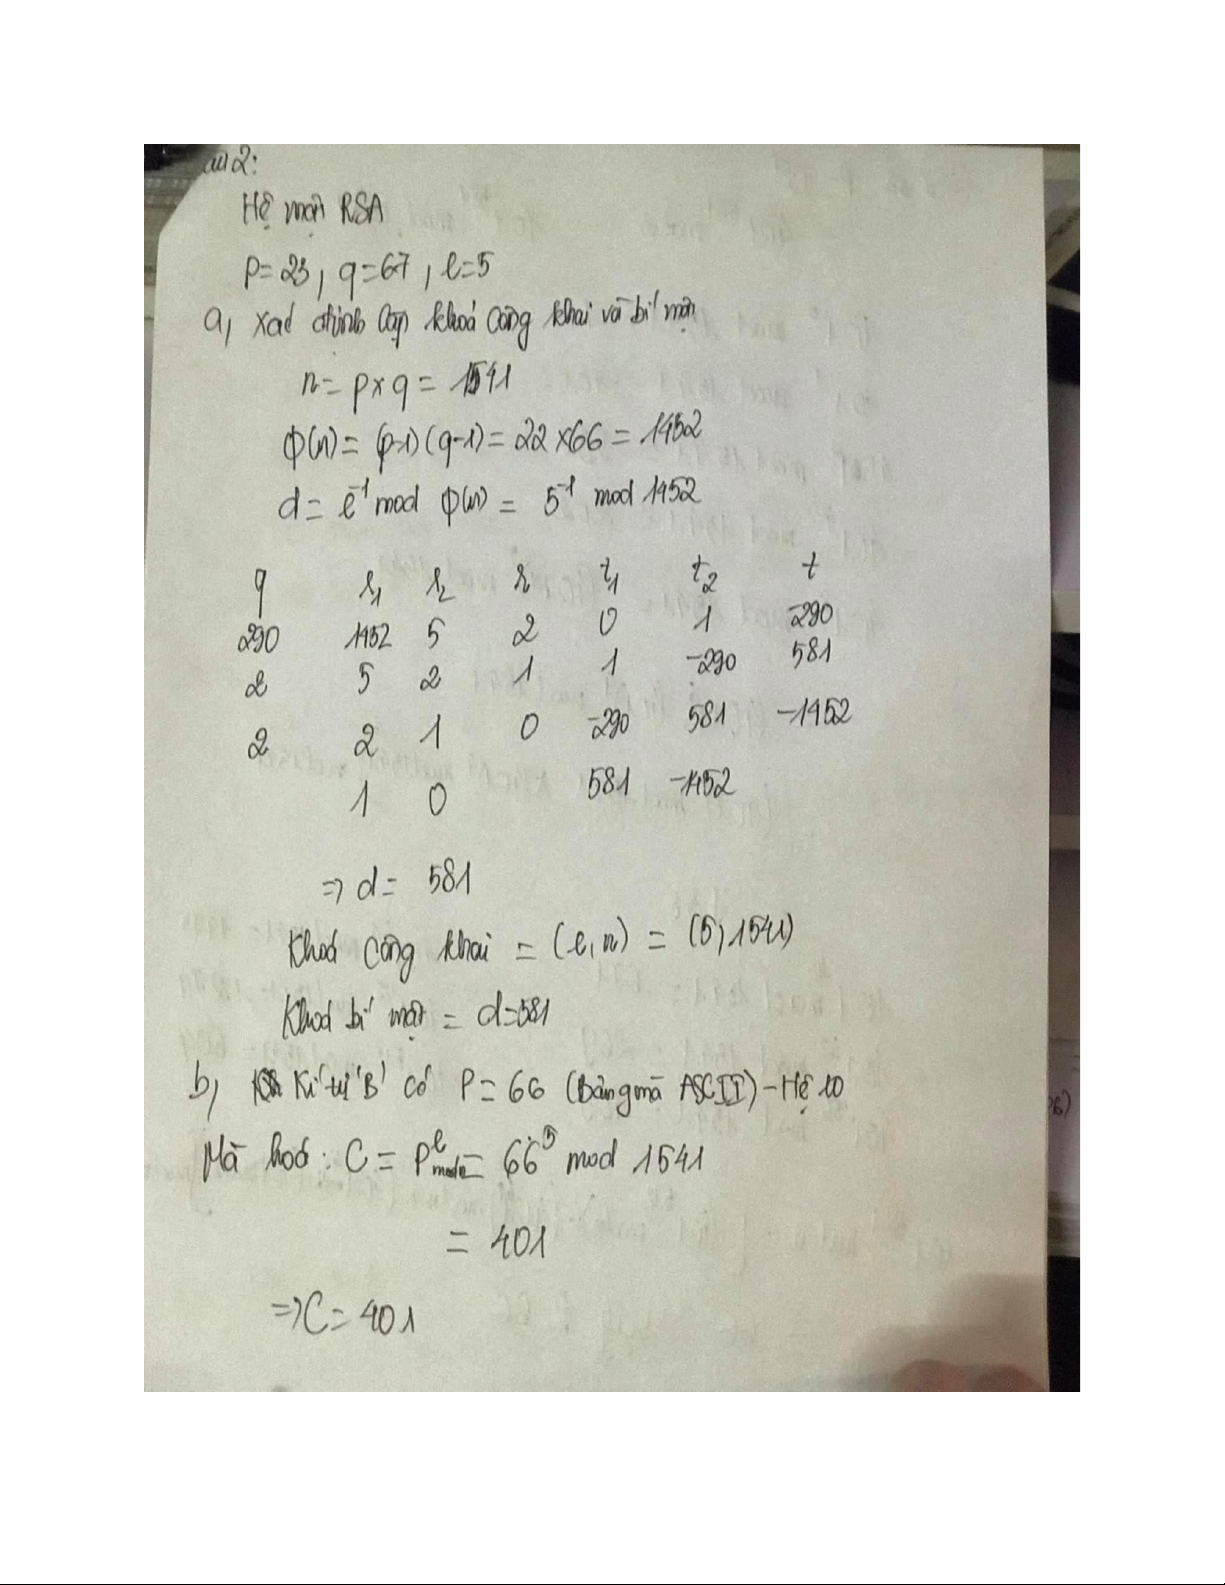 2:
Hệ mật RSA
P=23, q=67, e=5
a, xác định cặp khoá công khai và bí mật
n= p x q = 1541
Φ(n)= (p-1)(q-1)= 22 x 66 = 1452
d= e⁻¹ mod φ(n) = 5⁻¹ mod 1452
q r₁ r₂ r t₁ t₂ t
290 1452 5 2 0 1 -290
2 5 2 1 1 -290 581
2 2 1 0 -290 581 -1452
1 0 581 -1452
=> d= 581
Khoá công khai = (e, n) = (5, 1541)
Khoá bí mật = d=581
b, Kí tự 'B' có P= 66 (Bảng mã ASCII) - Hệ 10
Mã hoá : C = Pᵉ mod n = 66⁵ mod 1541
= 401
=> C= 401